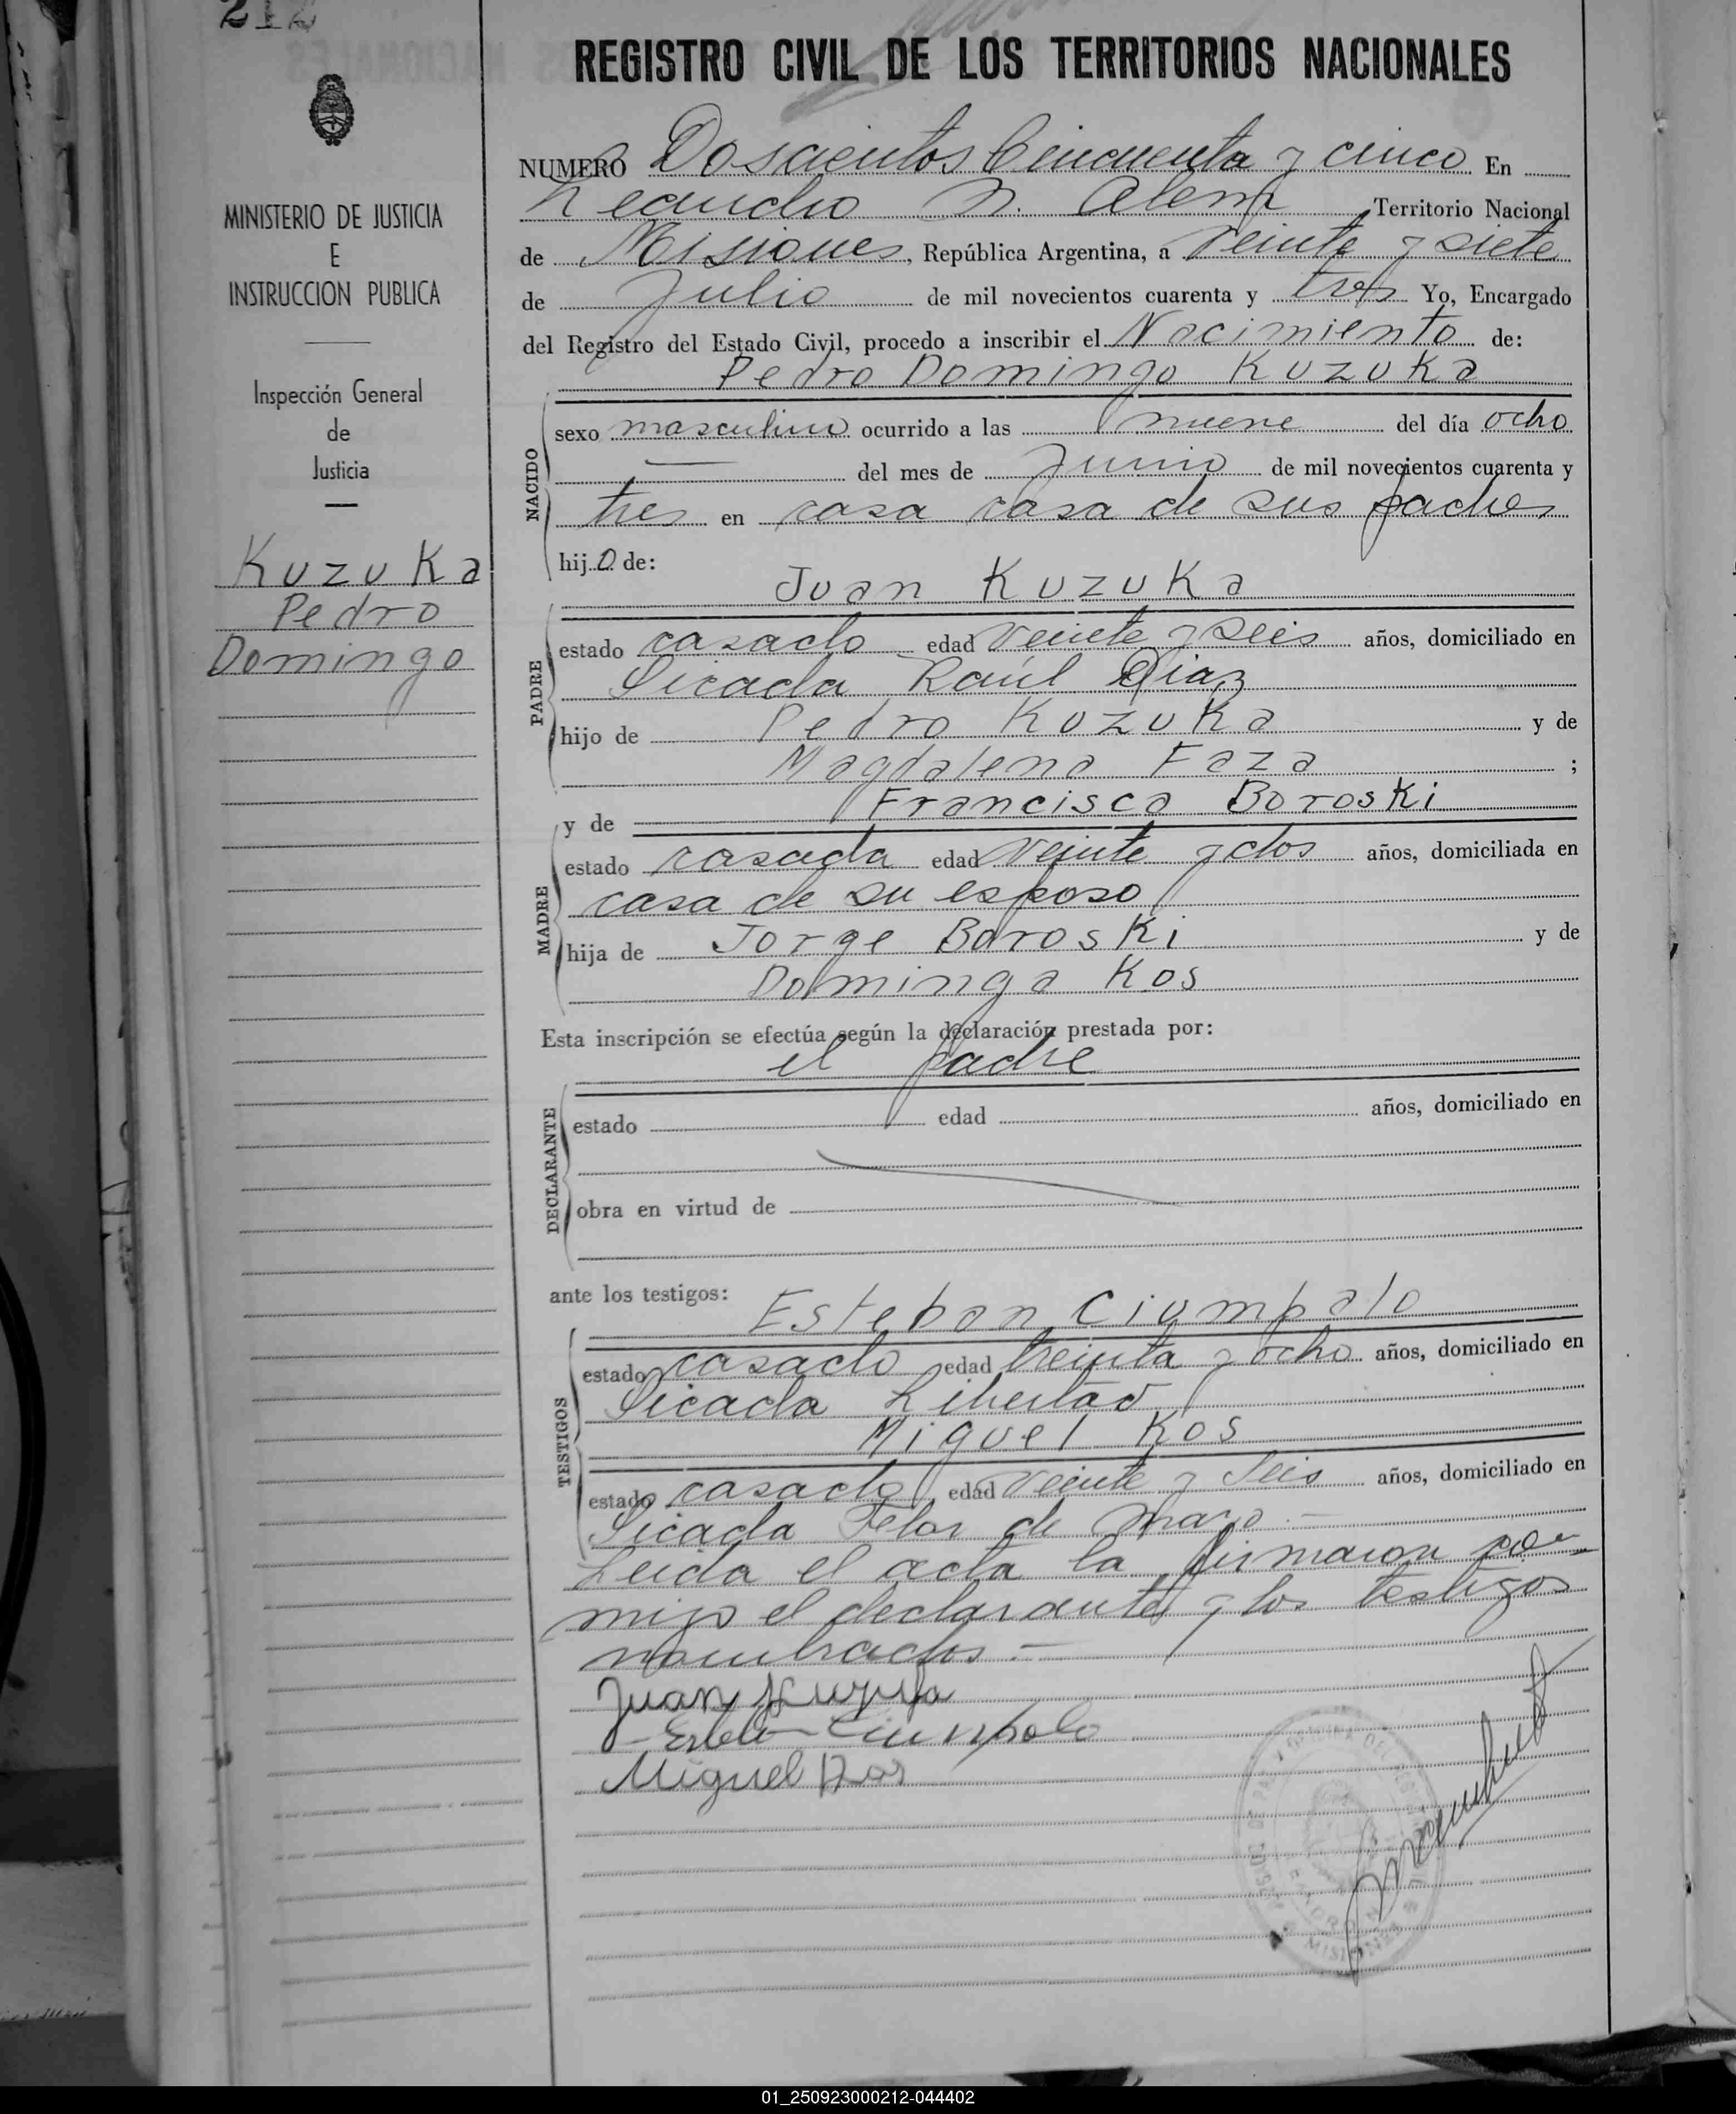 212
REGISTRO CIVIL DE LOS TERRITORIOS NACIONALES
MINISTERIO DE JUSTICIA
E
INSTRUCCION PUBLICA
Inspección General
de
Justicia
Kuzuka
Pedro
Domingo
NUMERO Doscientos Cincuenta y cinco En
Leandro N. Alem Territorio Nacional
de Misiones, República Argentina, a veinte y siete
de Julio de mil novecientos cuarenta y tres Yo, Encargado
del Registro del Estado Civil, procedo a inscribir el Nacimiento de:
Pedro Domingo Kuzuka
NACIDO
sexo masculino ocurrido a las nueve del día ocho
— del mes de Junio de mil novecientos cuarenta y
tres en casa casa de sus padres
hijo de:
Juan Kuzuka
PADRE
estado casado edad veinte y seis años, domiciliado en
Picada Raúl Diaz
hijo de Pedro Kuzuka y de
Magdalena Faza ;
y de Francisca Boroski
MADRE
estado casada edad veinte y dos años, domiciliada en
casa de su esposo
hija de Jorge Boroski y de
Dominga Kos
Esta inscripción se efectúa según la declaración prestada por:
el padre
DECLARANTE
estado edad años, domiciliado en
obra en virtud de
ante los testigos: Esteban Ciumpalo
TESTIGOS
estado casado edad treinta y ocho años, domiciliado en
Picada Libertad
Miguel Kos
estado casado edad veinte y seis años, domiciliado en
Picada de Mayo -
Leida el acta la firmaron con
migo el declarante y los testigos
nombrados.-
Juan Kuzuka
Ciumpalo
Miguel Kos
MISIONES
01_250923000212-044402